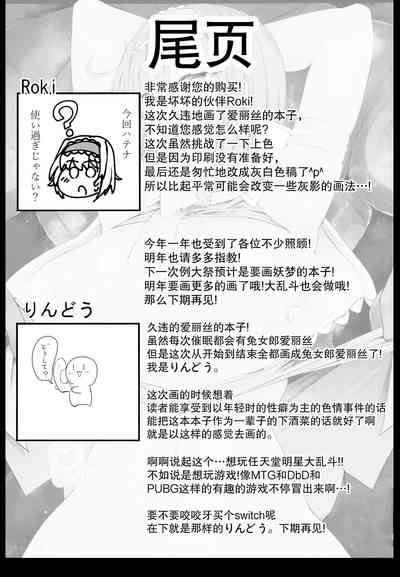 尾页
Roki
今回ハテナ
使い過ぎじゃない?
?
非常感谢您的购买!
我是坏坏的伙伴Roki!
这次久违地画了爱丽丝的本子,
不知道您感觉怎么样呢?
这次虽然挑战了一下上色
但是因为印刷没有准备好,
最后还是匆忙地改成灰白色稿了^p^
所以比起平常可能会改变一些灰影的画法…!
今年一年也受到了各位不少照顾!
明年也请多多指教!
下一次例大祭预计是要画妖梦的本子!
明年要画更多的画了哦!大乱斗也会做哦!
那么下期再见!
りんどう
どうして?
久违的爱丽丝的本子!
虽然每次催眠都会有兔女郎爱丽丝
但是这次从开始到结束全都画成兔女郎爱丽丝了!
我是りんどう。
这次画的时候想着
读者能享受到以年轻时的性癖为主的色情事件的话
能把这本本子作为一辈子的下酒菜的话就好了啊
就是以这样的感觉去画的。
啊啊说起这个…想玩任天堂明星大乱斗!!
不如说是想玩游戏!像MTG和DbD和
PUBG这样的有趣的游戏不停冒出来啊…!
要不要咬咬牙买个switch呢
在下就是那样的りんどう。下期再见!